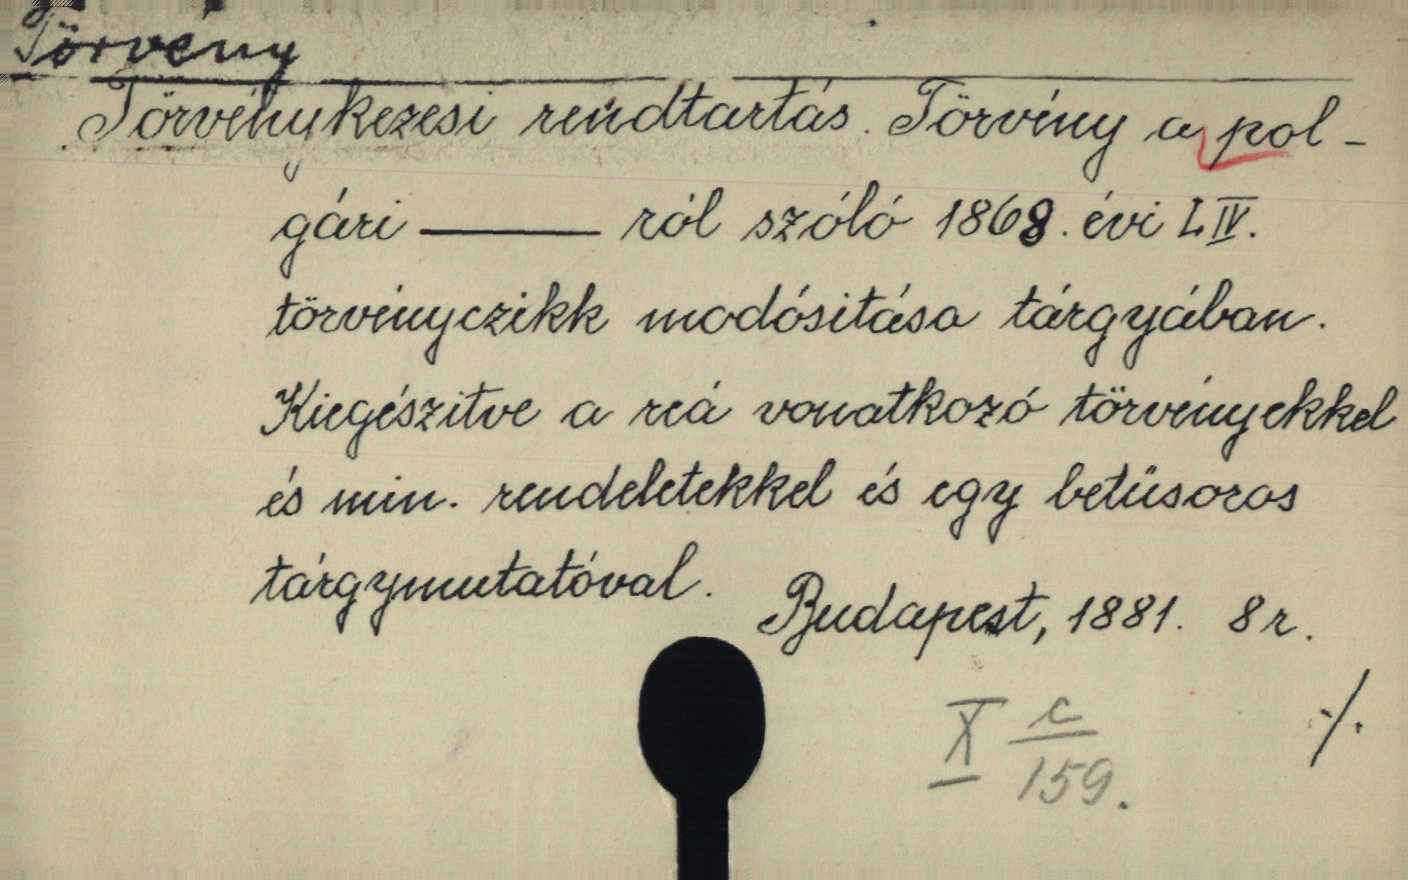 Törvény
Törvénykezesi rendtartás. Törvény a pol-
gári —— ról szóló 1868. évi LIV.
törvényczikk modósitása tárgyában.
Kiegészitve a reá vonatkozó törvényekkel
és min. rendeletekkel és egy betüsoros
tárgymutatóval.
Budapest, 1881. 8r.
X c/159.
./.